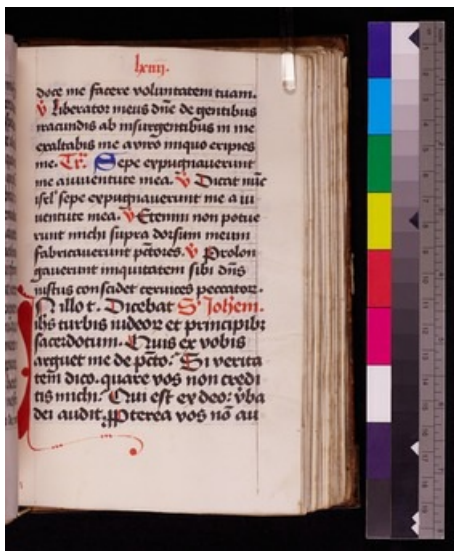 lxiiij.
doce me facere voluntatem tuam.
V Liberator meus dñe de gentibus
iracundis ab insurgentibus in me
exaltabis me a viro iniquo eripies
me. Tr. Sepe expugnauerunt
me a iuuentute mea. V Dicat nūc
isrl' sepe expugnauerunt me a iu
uentute mea. V Etenim non potue
runt michi supra dorsum meum
fabricauerunt pctores. V Prolon
gauerunt iniquitatem sibi dñs
iustus concidet ceruices peccator.
In illo t. Dicebat S. Johem.
ihs turbis iudeor et principibz
sacerdotum. Quis ex vobis
arguet me de pcto. Si verita
tem dico. quare vos non credi
tis michi. Qui est ex deo: v̄ba
dei audit. ppterea vos nō au